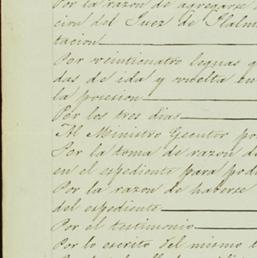 Por la razon de agregarse
cion del Juez de Tlalm
tacion
Por veinticuatro leguas q
das de ida y vuelta en
la posesion
Por los tres dias
Al Ministro Ejecutor po
Por la toma de razon d
en el espediente para pod
Por la razon de haberse
del espediente
Por el testimonio
Por lo escrito del mismo t